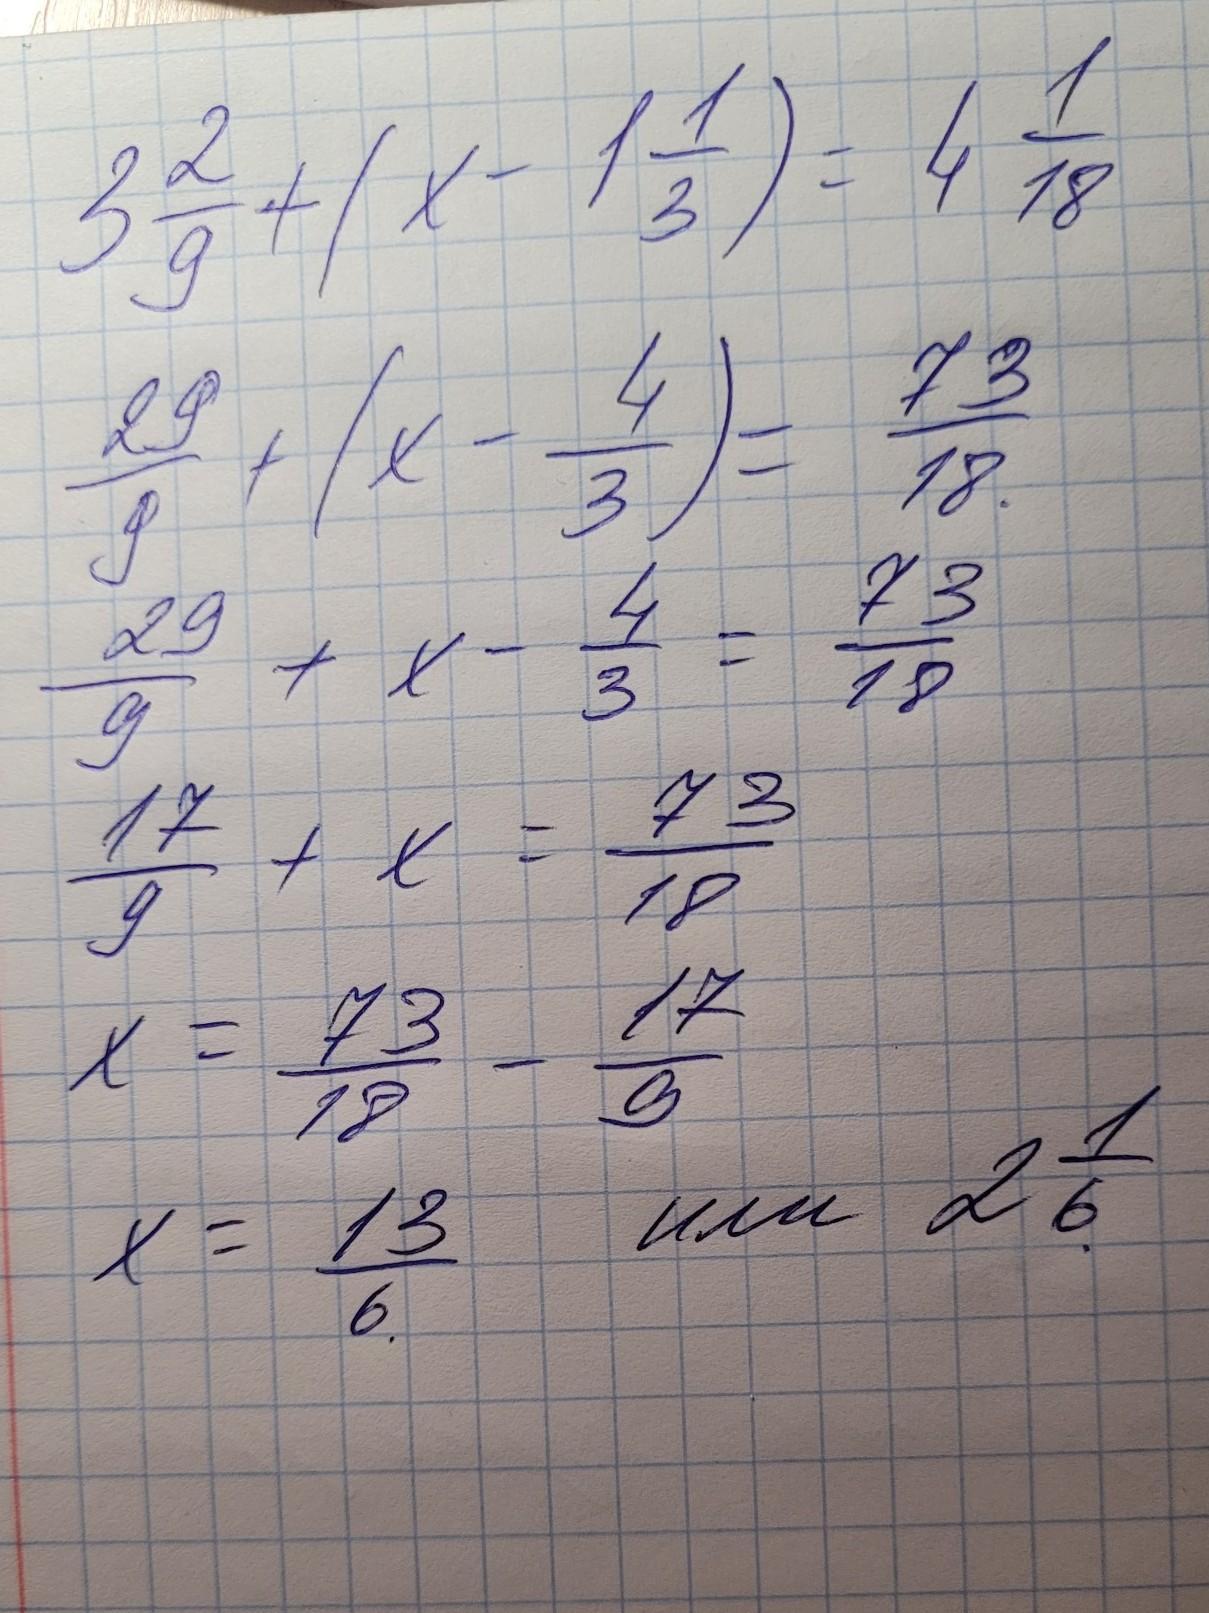 3 2/9 + (x - 1 1/3) = 4 1/18
29/9 + (x - 4/3) = 73/18.
29/9 + x - 4/3 = 73/18
17/9 + x = 73/18
x = 73/18 - 17/9
x = 13/6. или 2 1/6.